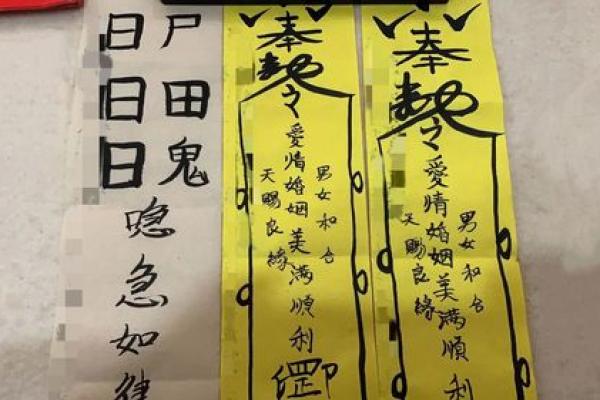 奉勅令愛情婚姻美滿順利
男女和合
天賜良緣
奉勅令愛情婚姻美滿順利
男女和合
天賜良緣
尸田鬼
日日日
急如律